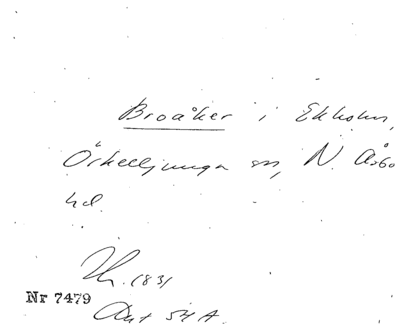 Broåker i Ekholm,
Örkelljunga sn, N. Åsbo
hd.
Hr. 1831
Nr 7479
Akt 54 A.